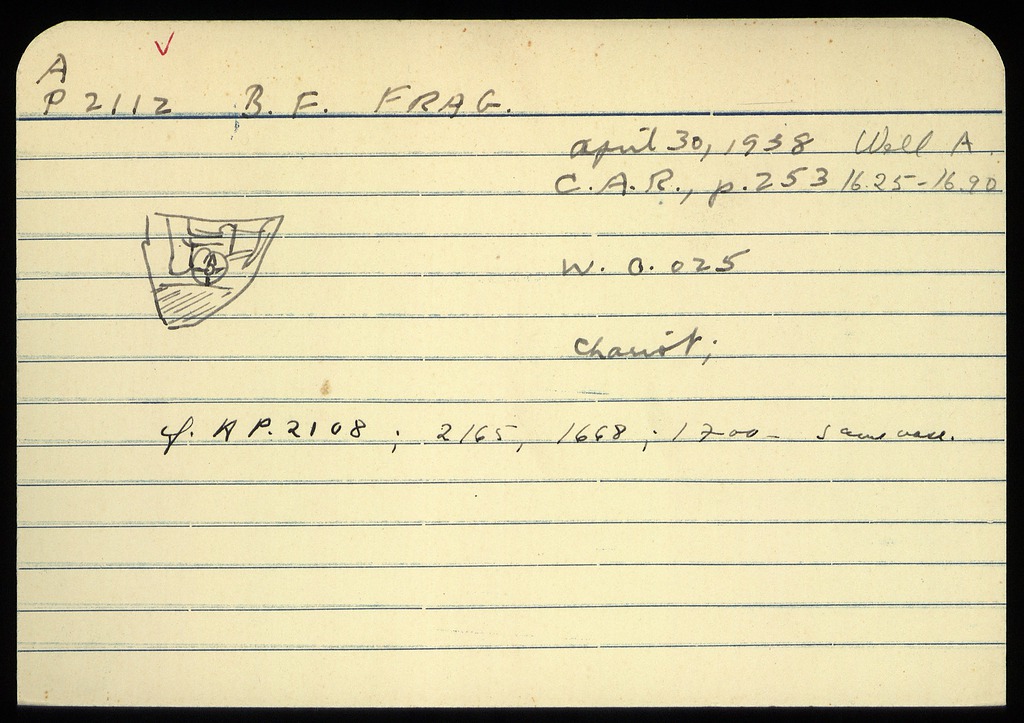 A
P 2112 B. F. FRAG.
april 30, 1938 Well A.
C.A.R., p. 253 16.25-16.90
W. 0.025
Chariot;
cf. A P. 2108; 2165, 1668; 1700 - same vase.